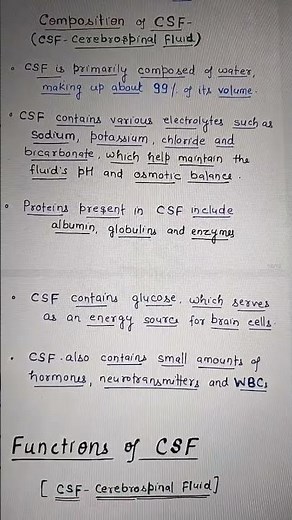 Composition of CSF-
(CSF- Cerebrospinal Fluid)
• CSF is primarily composed of water,
making up about 99% of its volume.
• CSF contains various electrolytes such as
Sodium, potassium, chloride and
bicarbonate, which help maintain the
fluid's pH and osmotic balance.
• Proteins present in CSF include
albumin, globulins and enzymes
• CSF contains glucose, which serves
as an energy source for brain cells.
• CSF also contains small amounts of
hormones, neurotransmitters and WBCs
Functions of CSF
[CSF- Cerebrospinal Fluid]